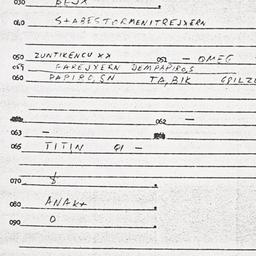 030 BEJX
040 STABESTORMENITREJXERN
050 ZUNTIKENCU XX 051 - OMEG
059 GAREJXERN DEMPAPIRO,S
060 PAPIRO,SN TA,BIK
062 -
063 -
065 TITIN 01 -
070
080 ANAK+
090 O